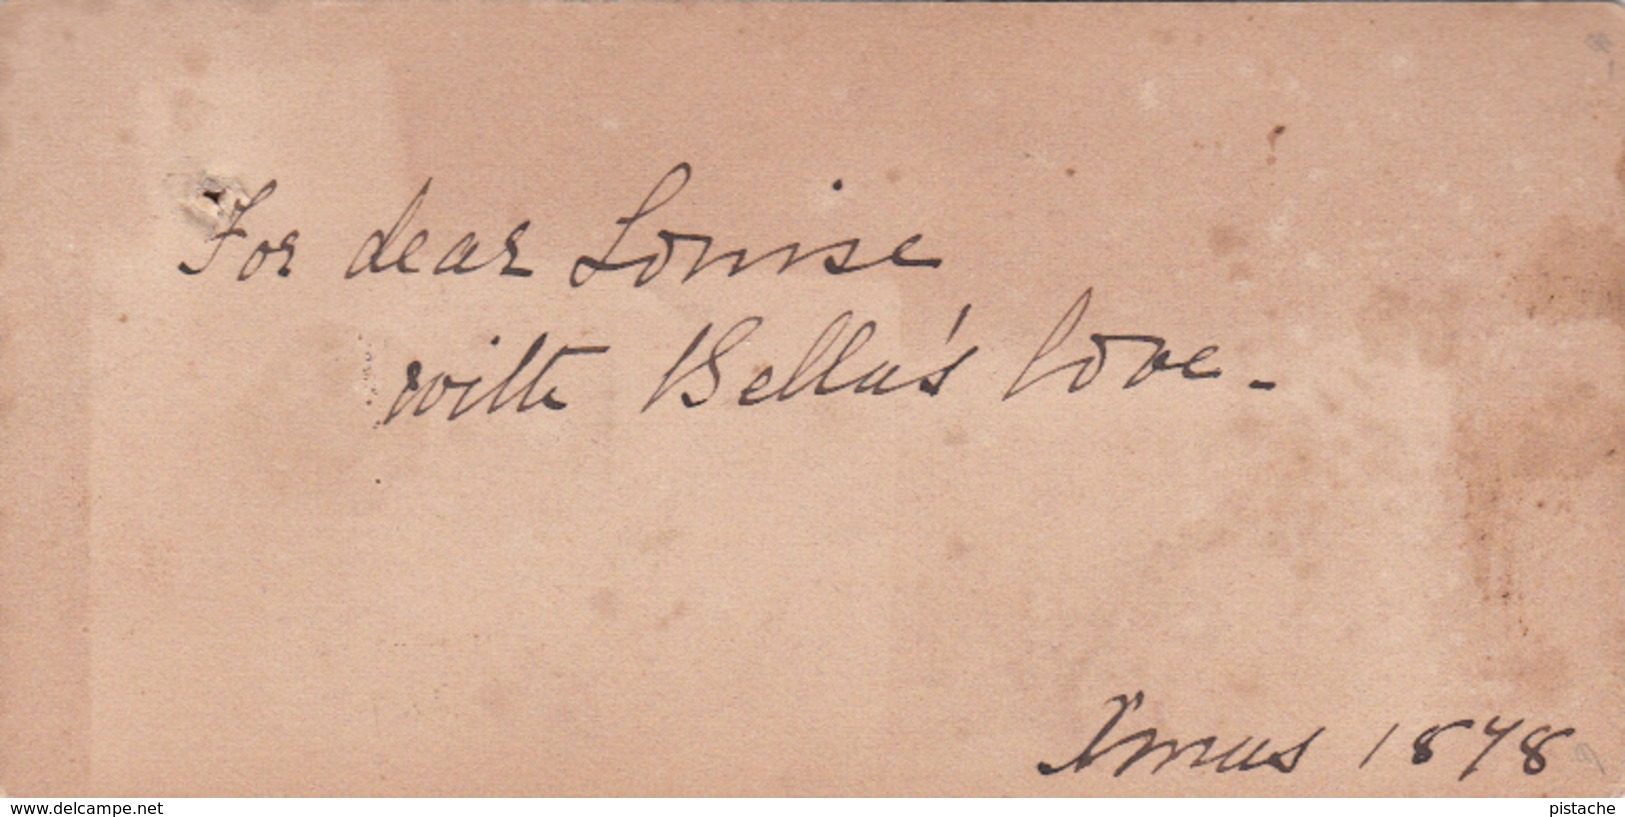 For dear Louise
with Bella's love -
Xmas 1878
www.delcampe.net
pistache